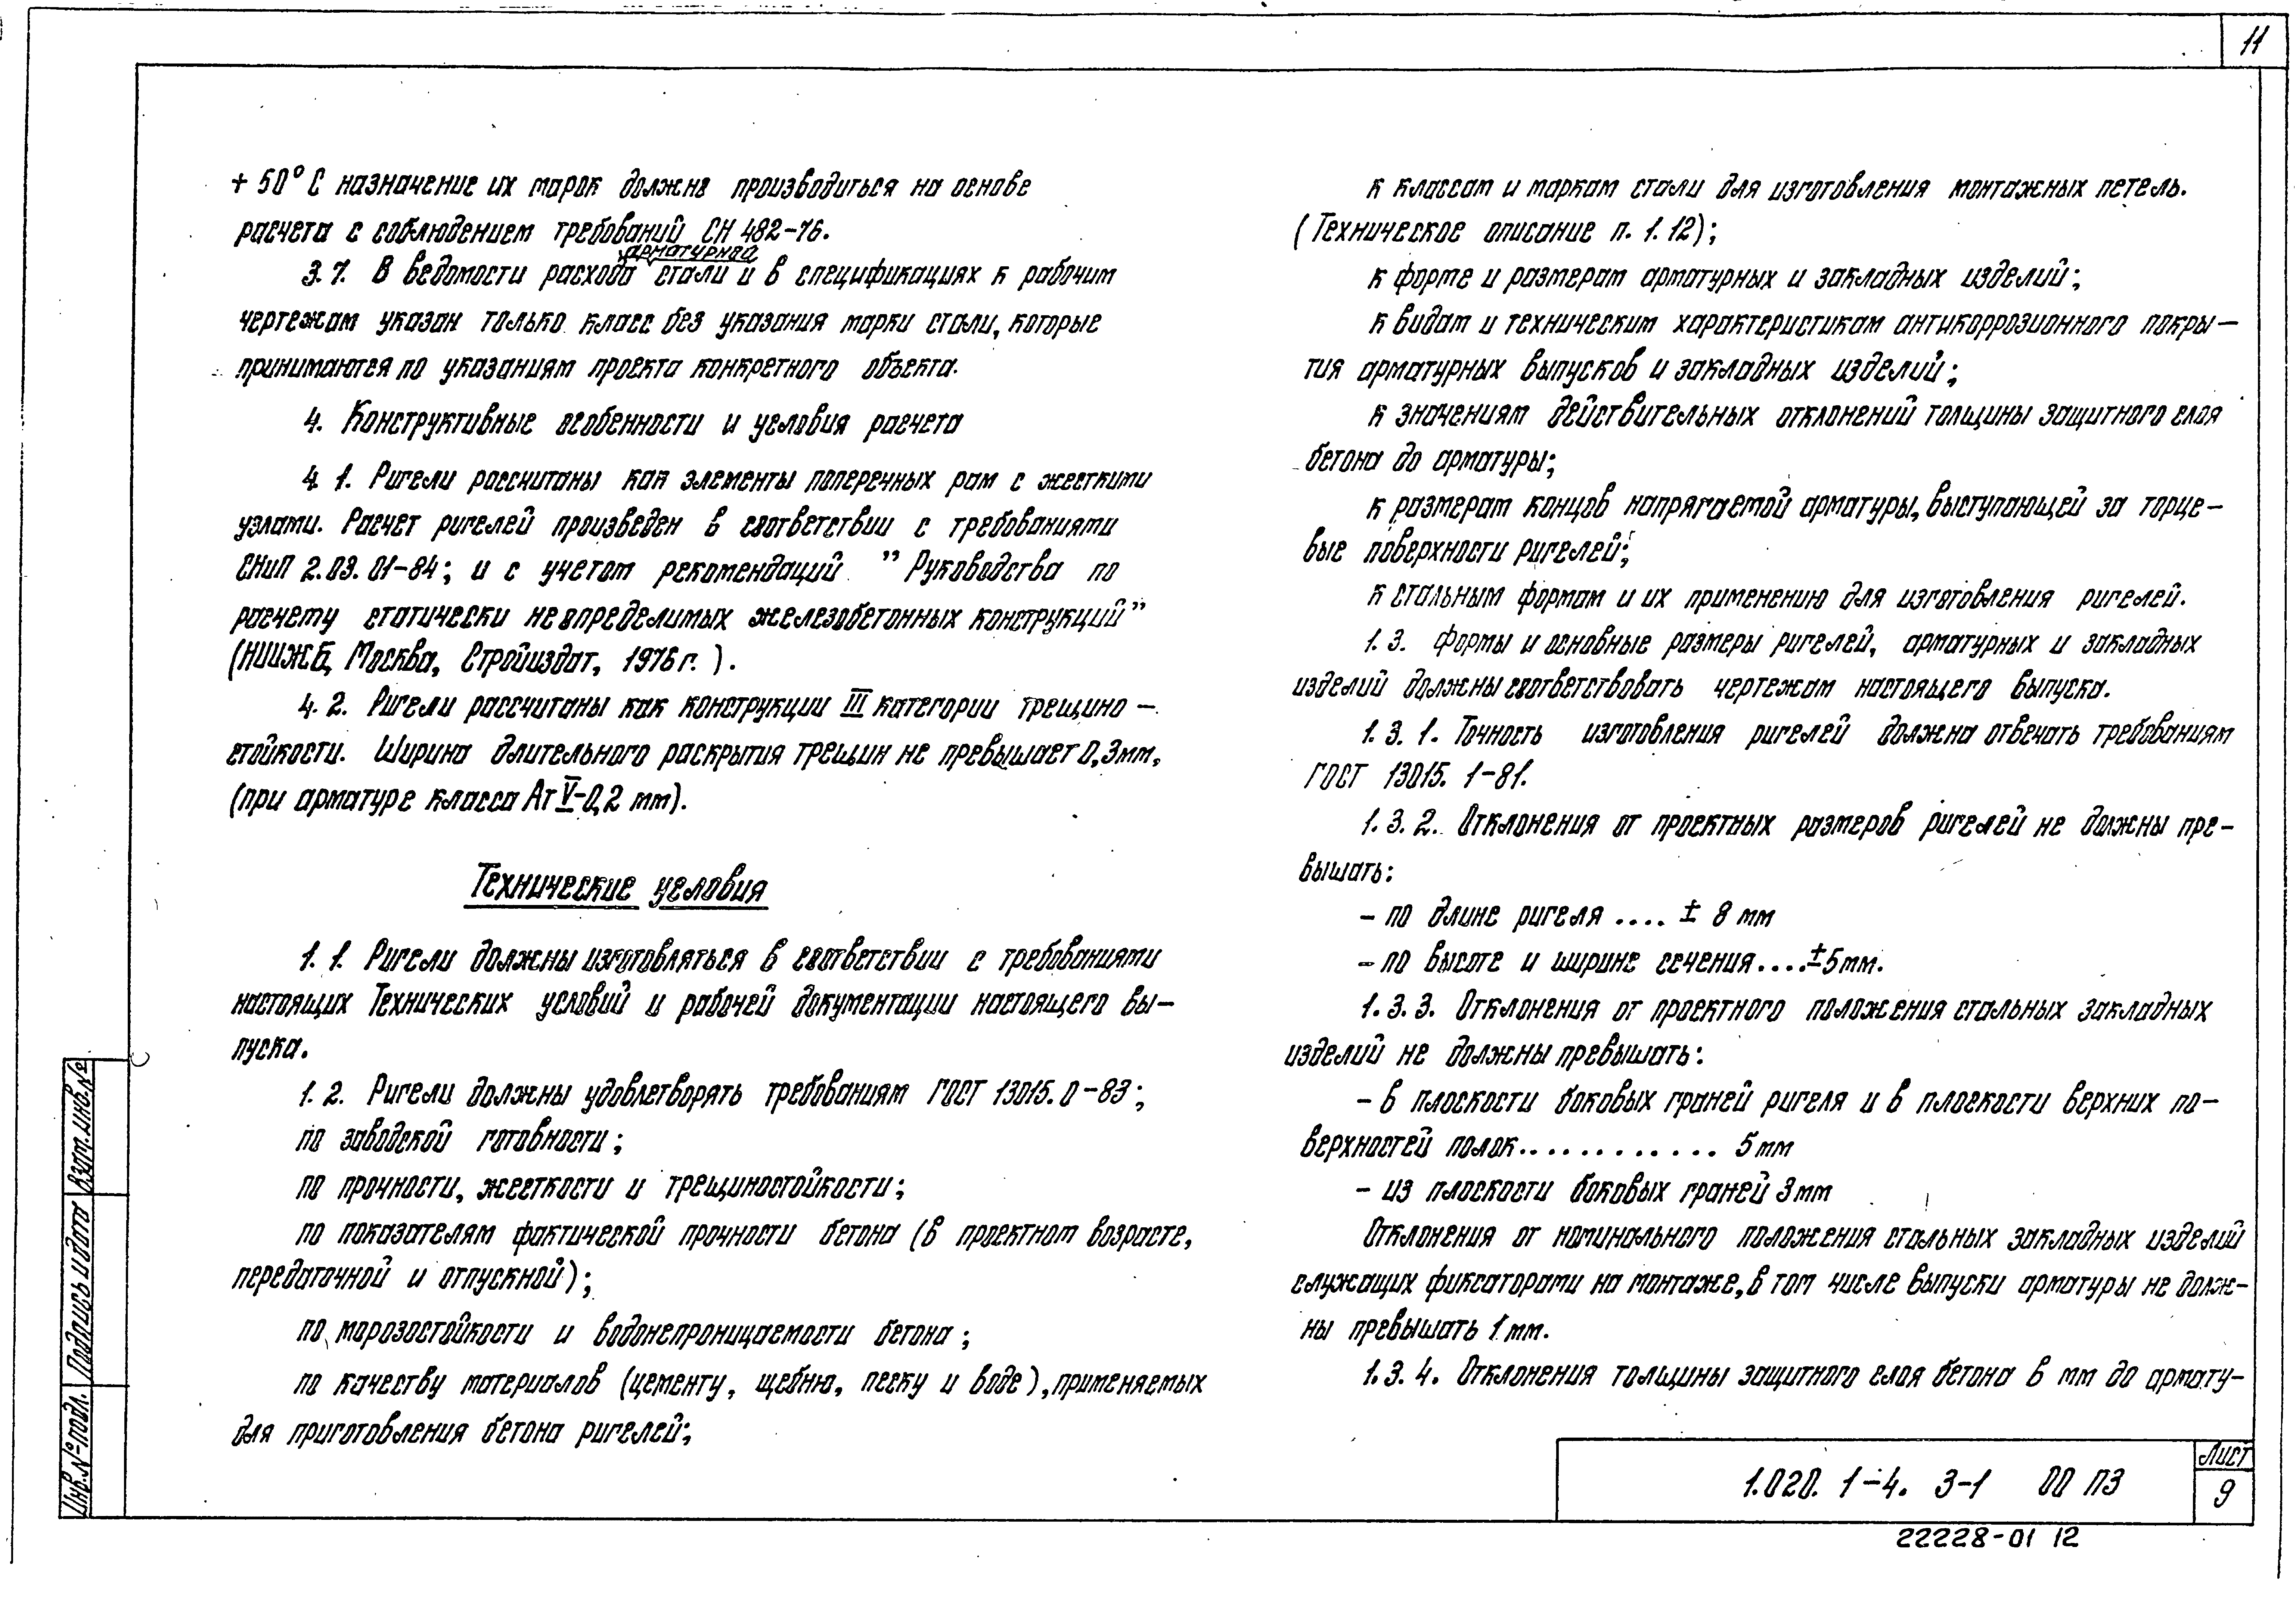 11
+ 50° С назначение их марок должно производиться на основе
расчета с соблюдением требований СН 482-76.
арматурной
3.7. В ведомости расхода стали и в спецификациях к рабочим
чертежам указан только класс без указания марки стали, которые
принимаются по указаниям проекта конкретного объекта.
4. Конструктивные особенности и условия расчета
4.1. Ригели рассчитаны как элементы поперечных рам с жесткими
узлами. Расчет ригелей произведен в соответствии с требованиями
СНиП 2.03.01-84; и с учетом рекомендаций "Руководства по
расчету статически неопределимых железобетонных конструкций"
(НИИЖБ, Москва, Стройиздат, 1976г.).
4.2. Ригели рассчитаны как конструкции III категории трещино-
стойкости. Ширина длительного раскрытия трещин не превышает 0,3мм,
(при арматуре класса Ат V-0,2 мм).
Технические условия
1.1. Ригели должны изготовляться в соответствии с требованиями
настоящих Технических условий и рабочей документации настоящего вы-
пуска.
1.2. Ригели должны удовлетворять требованиям ГОСТ 13015.0-83;
по заводской готовности;
по прочности, жесткости и трещиностойкости;
по показателям фактической прочности бетона (в проектном возрасте,
передаточной и отпускной);
по морозостойкости и водонепроницаемости бетона;
по качеству материалов (цементу, щебню, песку и воде), применяемых
для приготовления бетона ригелей;
к классам и маркам стали для изготовления монтажных петель.
(Техническое описание п. 1.12);
к форме и размерам арматурных и закладных изделий;
к видам и техническим характеристикам антикоррозионного покры-
тия арматурных выпусков и закладных изделий;
к значениям действительных отклонений толщины защитного слоя
бетона до арматуры;
к размерам концов напрягаемой арматуры, выступающей за торце-
вые поверхности ригелей;
к стальным формам и их применению для изготовления ригелей.
1.3. Формы и основные размеры ригелей, арматурных и закладных
изделий должны соответствовать чертежам настоящего выпуска.
1.3.1. Точность изготовления ригелей должна отвечать требованиям
ГОСТ 13015.1-81.
1.3.2. Отклонения от проектных размеров ригелей не должны пре-
вышать:
- по длине ригеля .... ± 8 мм
- по высоте и ширине сечения....±5мм.
1.3.3. Отклонения от проектного положения стальных закладных
изделий не должны превышать:
- в плоскости боковых граней ригеля и в плоскости верхних по-
верхностей полок............. 5мм
- из плоскости боковых граней 3мм
Отклонения от номинального положения стальных закладных изделий
служащих фиксаторами на монтаже, в том числе выпуски арматуры не долж-
ны превышать 1мм.
1.3.4. Отклонения толщины защитного слоя бетона в мм до армату-
Инв.№ подл. Подпись и дата Взам.инв.№
1.020.1-4. 3-1 00 ПЗ
Лист
9
22228-01 12